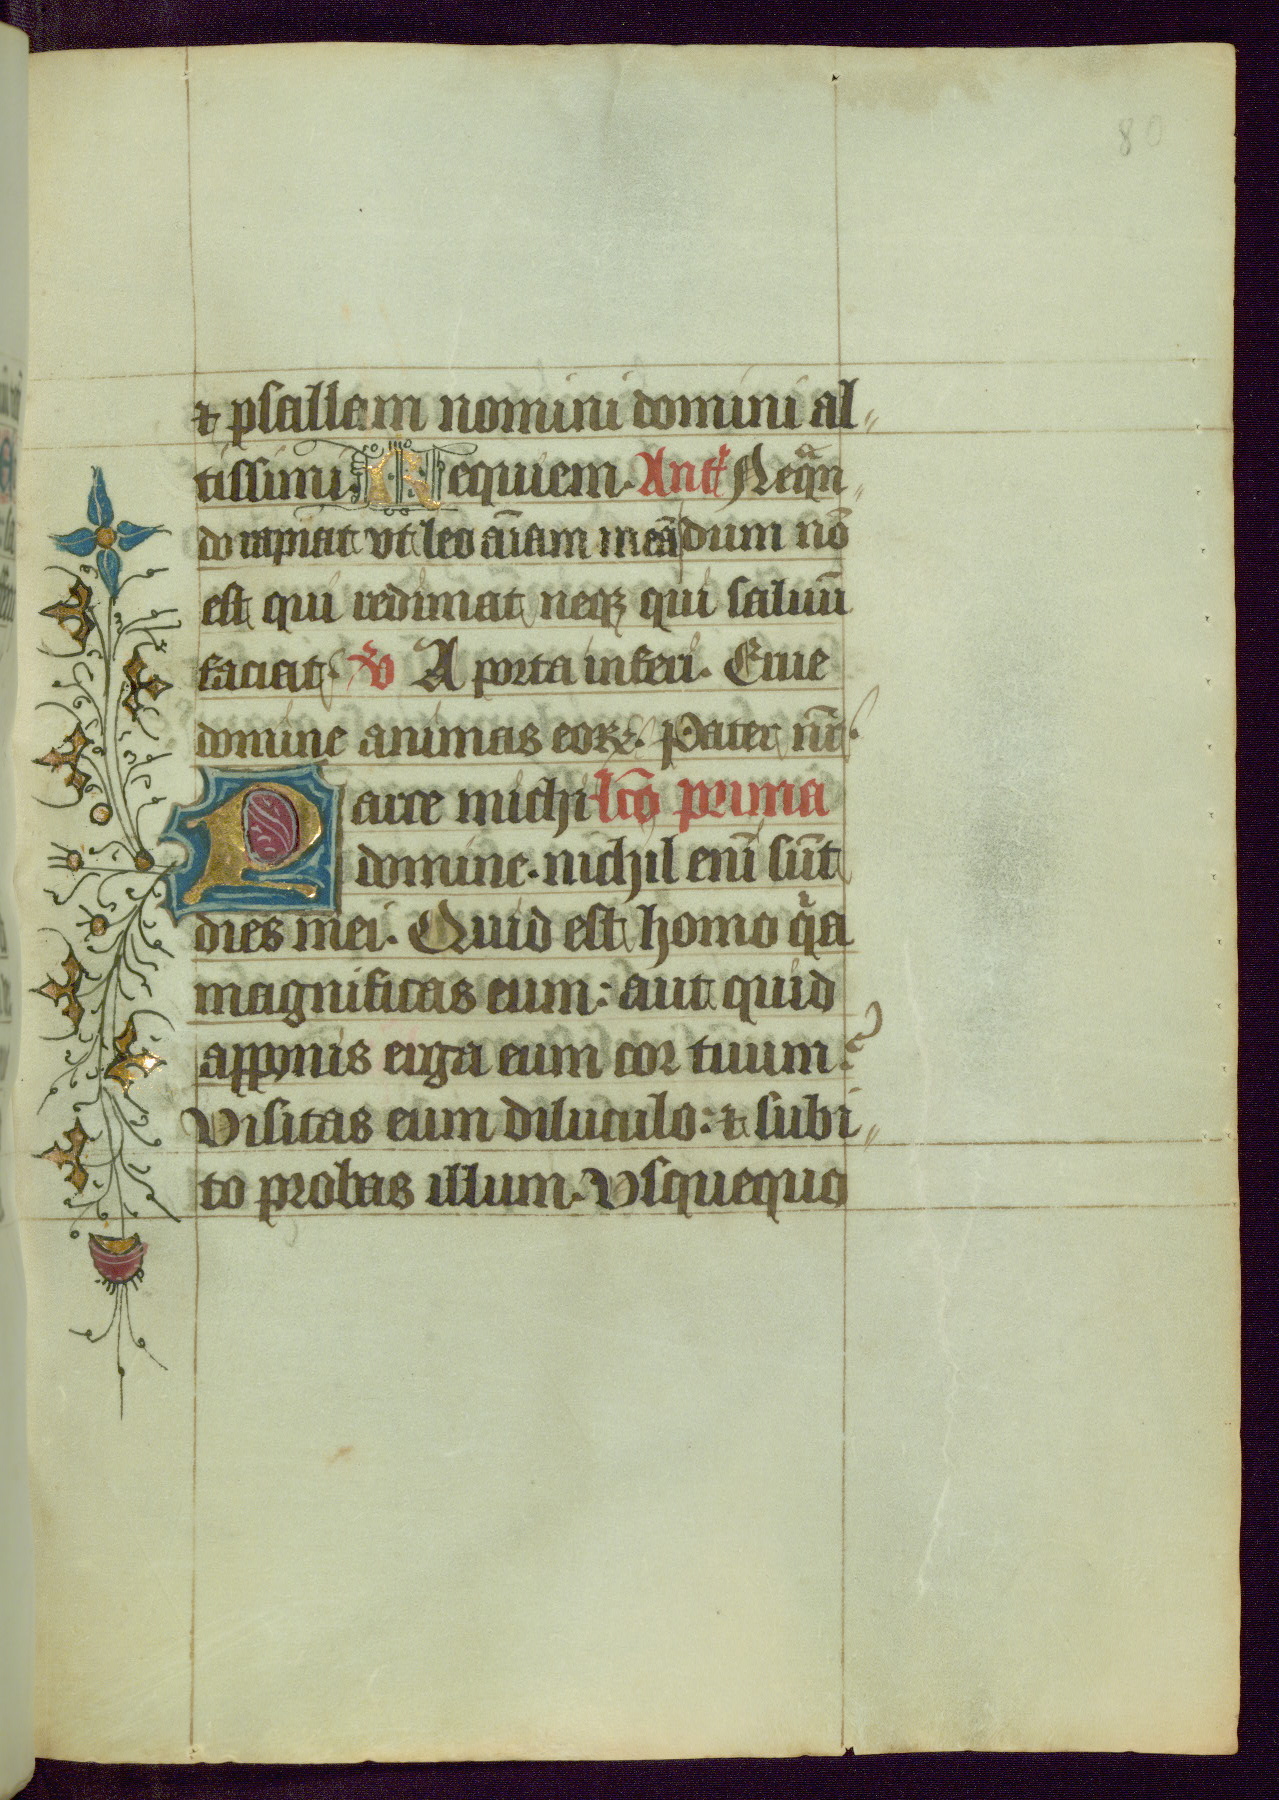 80
⁊ psallam nomini domini al〃
tissimi. Requiem. Añt Neqͣn〃
do rapiat vt leo aīam meā dum nō
est qui redimat neqꝫ qui saluū
faciat. ℣ A porta inferi. Erue
domine animas eoꝝ. Pater nr̄.
Parce michi lc̄o prima
domine. nichil enī sūt
dies mei. Quid est homo qͥa
magnificas eum: aut quid
apponis erga eum cor tuum?
Visitas eum diluculo: ⁊ subi〃
to probas illum. Vsquequo